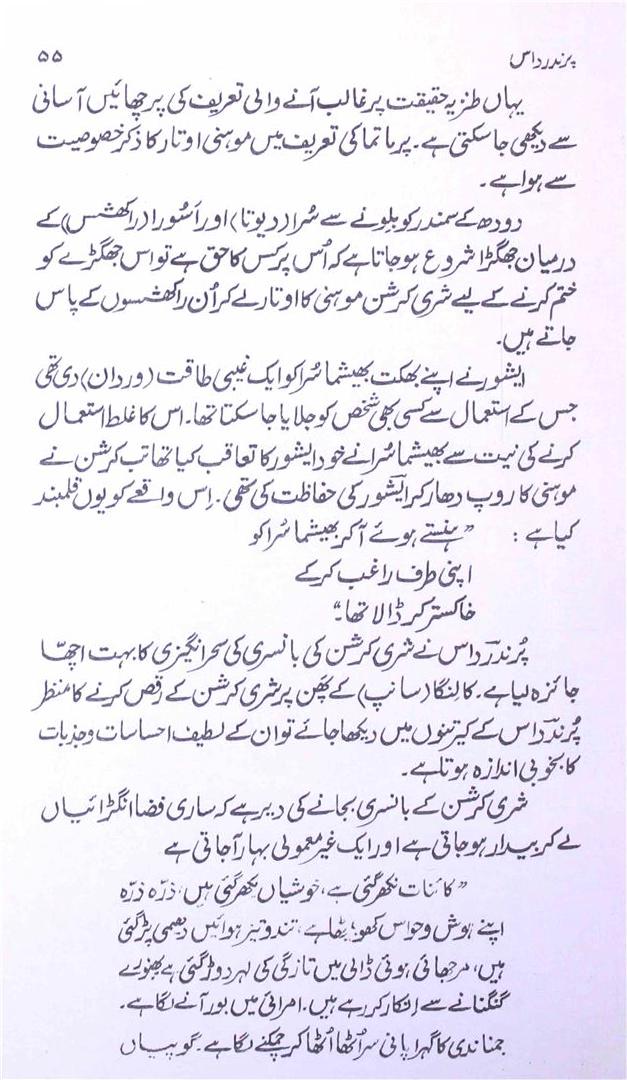 پرندر داس ۵۵
یہاں طنزیہ حقیقت پر غالب آنے والی تعریف کی پرچھائیں آسانی
سے دیکھی جاسکتی ہے۔ پرماتما کی تعریف میں موہنی اوتار کا ذکر خصوصیت
سے ہوا ہے۔
دودھ کے سمندر کو بلونے سے سُرا (دیوتا) اور اَسُورا (راکھشس) کے
درمیان جھگڑا شروع ہو جاتا ہے کہ اُس پر کس کا حق ہے تو اس جھگڑے کو
ختم کرنے کے لیے شری کرشن موہنی کا اوتار لے کر اُن راکھشسوں کے پاس
جاتے ہیں۔
ایشور نے اپنے بھکت بھیشما سُرا کو ایک غیبی طاقت (وردان) دی تھی
جس کے استعمال سے کسی بھی شخص کو جلایا جاسکتا تھا۔ اس کا غلط استعمال
کرنے کی نیت سے بھیشما سُرا نے خود ایشور کا تعاقب کیا تھا تب کرشن نے
موہنی کا روپ دھار کر ایشور کی حفاظت کی تھی۔ اِس واقعے کو یوں قلمبند
کیا ہے : ”ہنستے ہوئے آکر بھیشما سُرا کو
اپنی طرف راغب کرکے
خاکستر کر ڈالا تھا۔“
پُرندر داس نے شری کرشن کی بانسری کی سحر انگیزی کا بہت اچھّا
جائزہ لیا ہے۔ کالنگا (سانپ) کے پھَن پر شری کرشن کے رقص کرنے کا منظر
پُرندر داس کے کیرتنوں میں دیکھا جائے تو ان کے لطیف احساسات و جذبات
کا بخوبی اندازہ ہوتا ہے۔
شری کرشن کے بانسری بجانے کی دیر ہے کہ ساری فضا انگڑائیاں
لے کر بیدار ہو جاتی ہے اور ایک غیر معمولی بہار آجاتی ہے
”کائنات نکھر گئی ہے، خوشیاں بکھر گئی ہیں، ذرّہ ذرّہ
اپنے ہوش و حواس کھو بیٹھا ہے، تند و تیز ہوائیں دھیمی پڑ گئی
ہیں، مرجھائی ہوئی ڈالی میں تازگی کی لہر دوڑ گئی ہے بھنورے
گنگنانے سے انکار کر رہے ہیں۔ امرائی میں بور آنے لگا ہے۔
جمنا ندی کا گہرا پانی سر اُٹھا اُٹھا کر چمکنے لگا ہے۔ گوپیاں